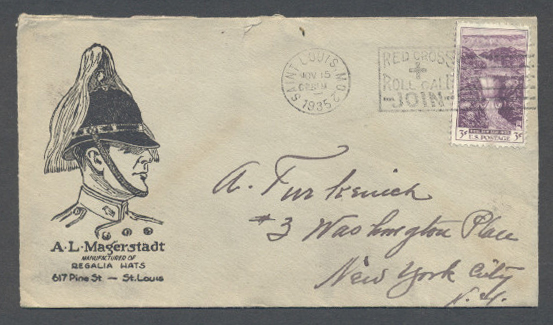 SAINT LOUIS, MO.
NOV 15
1935
RED CROSS
ROLL CALL
JOIN
3¢ 3¢
U.S. POSTAGE
A. Furkenich
#3 Washington Place
New York City
N.Y.
A·L·Magerstadt
MANUFACTURED OF
REGALIA HATS
617 Pine St — St. Louis